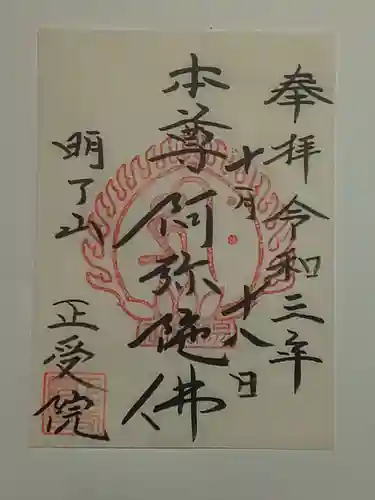 奉拝 令和三年
十月 十八日
本尊 阿弥陀佛
明了山
正受院